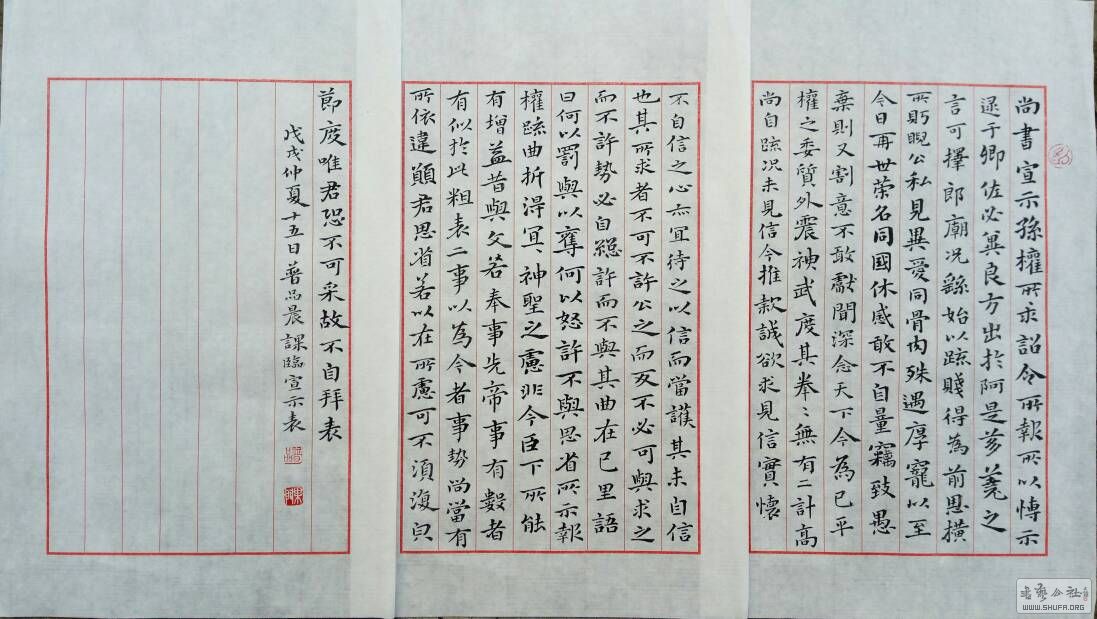 尚書宣示孫權所求詔令所報所以博示
逮于卿佐必冀良方出於阿是芻蕘之
言可擇郎廟況繇始以疏賤得為前恩橫
所眄睨公私見異愛同骨肉殊遇厚寵以至
今日再世榮名同國休慼敢不自量竊致愚
棄則又割意不敢獻聞深念天下今為已平
權之委質外震神武度其拳々無有二計高
尚自疏況未見信今推款誠欲求見信實懷
不自信之心亦宜待之以信而當護其未自信
也其所求者不可不許公之而反不必可與求之
而不許勢必自絕許而不與其曲在己里語
曰何以罰與以奪何以怒許不與思省所示報
權疏曲折得宜神聖之慮非今臣下所能
有增益昔與文若奉事先帝事有數者
有似於此粗表二事以為今者事勢尚當有
所依違願君思省若以在所慮可不須復皃
節度唯君恐不可采故不自拜表
戊戌仲夏十五日普品晨課臨宣示表
書藝公社
WWW.SHUFA.ORG